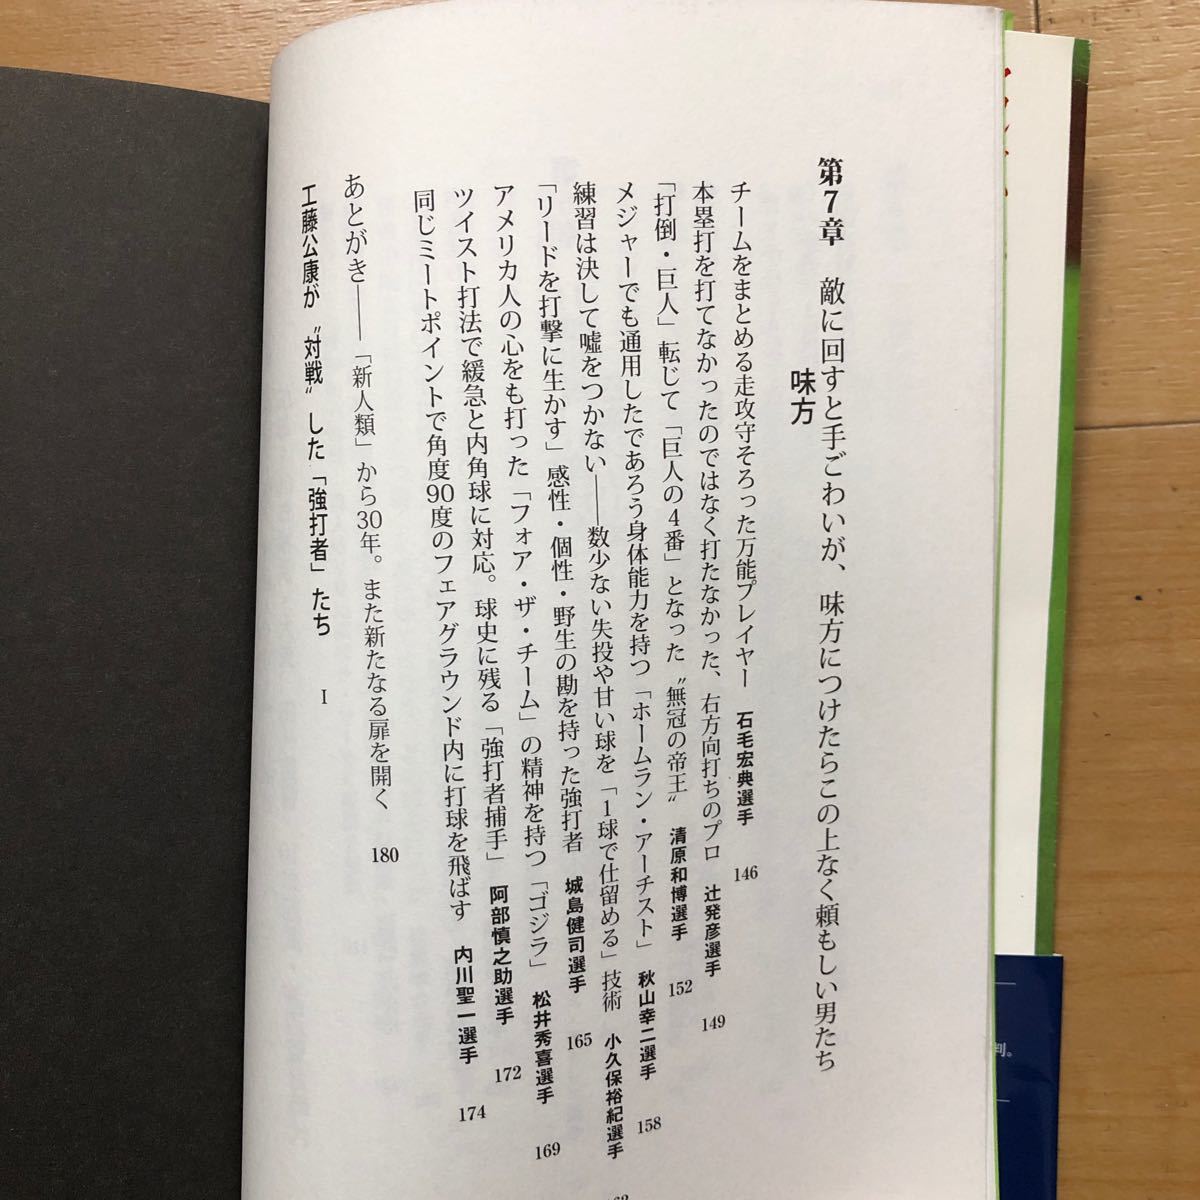 第7章 敵に回すと手ごわいが、味方につけたらこの上なく頼もしい男たち
味方
チームをまとめる走攻守そろった万能プレイヤー 石毛宏典選手 146
本塁打を打てなかったのではなく打たなかった、右方向打ちのプロ 辻発彦選手 149
「打倒・巨人」転じて「巨人の4番」となった〝無冠の帝王〟 清原和博選手 152
メジャーでも通用したであろう身体能力を持つ「ホームラン・アーチスト」 秋山幸二選手 158
練習は決して嘘をつかない——数少ない失投や甘い球を「1球で仕留める」技術 小久保裕紀選手
「リードを打撃に生かす」感性・個性・野生の勘を持った強打者 城島健司選手 165
アメリカ人の心をも打った「フォア・ザ・チーム」の精神を持つ「ゴジラ」 松井秀喜選手 169
ツイスト打法で緩急と内角球に対応。球史に残る「強打者捕手」 阿部慎之助選手 172
同じミートポイントで角度90度のフェアグラウンド内に打球を飛ばす 内川聖一選手 174
あとがき——「新人類」から30年。また新たなる扉を開く 180
工藤公康が〝対戦〟した「強打者」たち I
判。